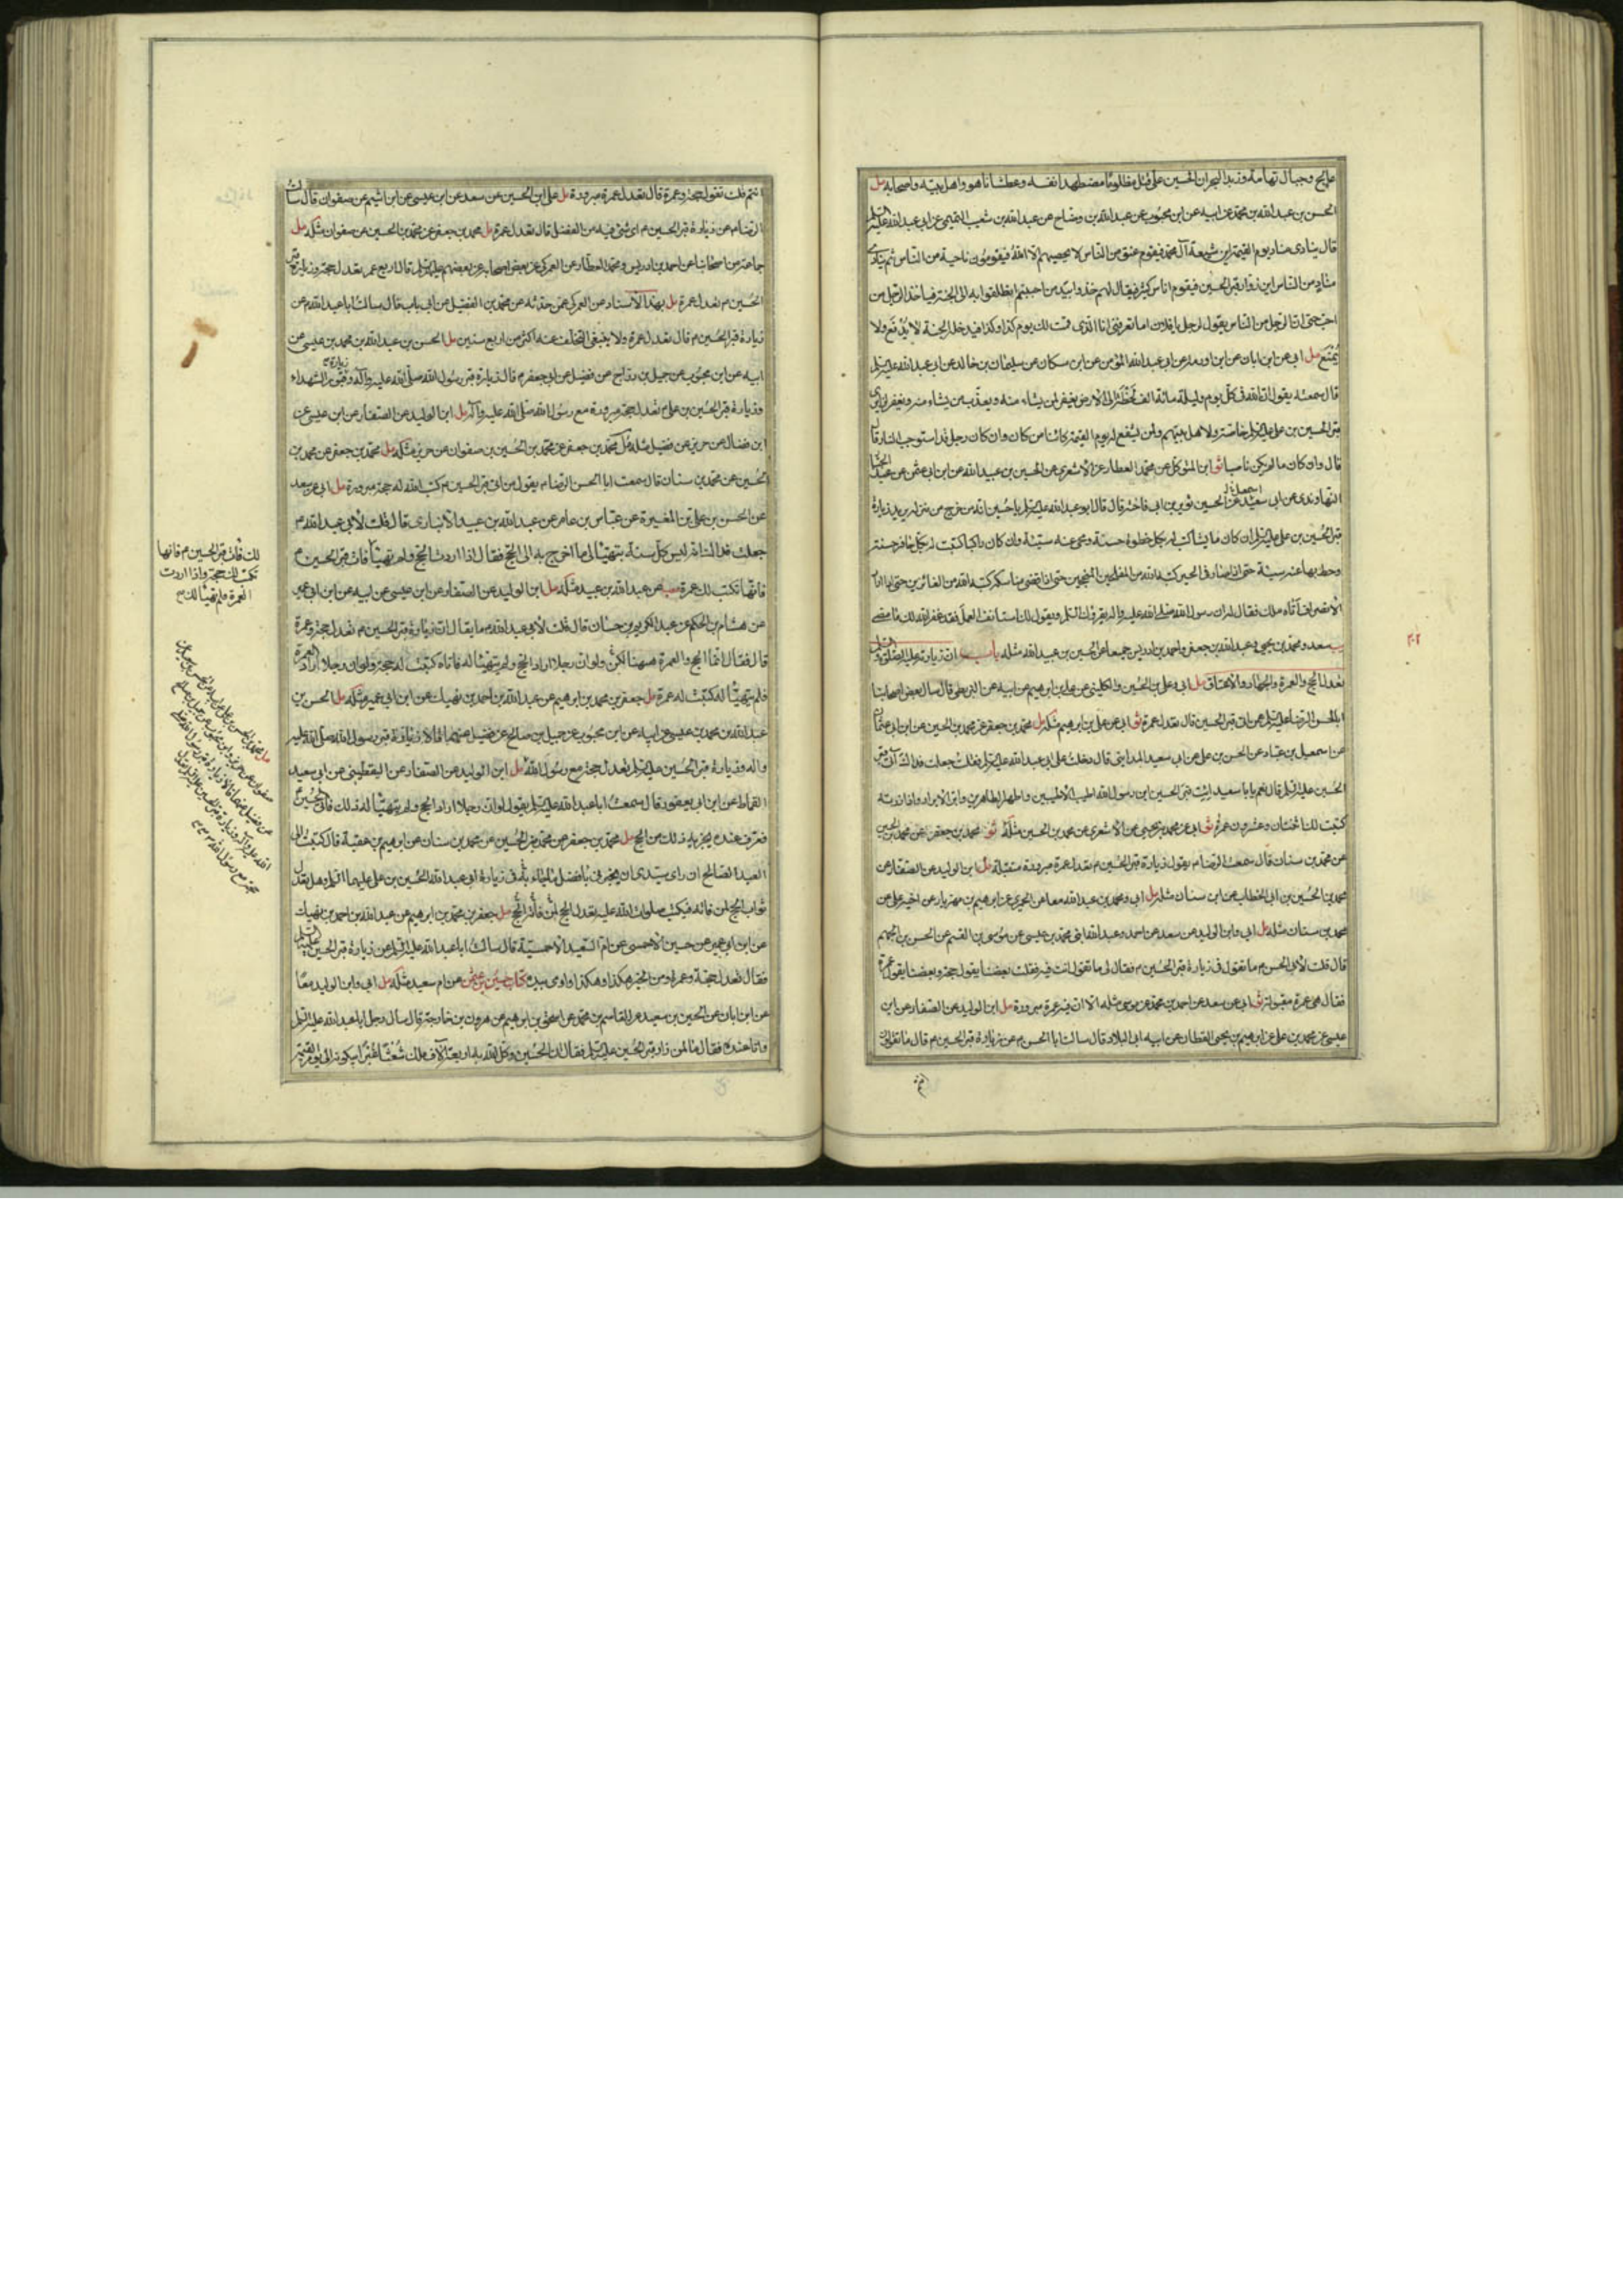 عالج وجبال تهامة وزبد البحر ان الحسين على قتل مظلوما مضطهدا نفسه وعطشانا هو واهل بيته واصحابه مل
الحسن بن عبد الله بن محمد عن ابيه عن ابن محبوب عن عبد الله بن وضاح عن عبد الله بن شعيب التيمى عن ابى عبد الله عليه السلم
قال ينادى مناد يوم القيمة اين شيعة آل محمد فيقوم عنق من الناس لا يحصيهم الا الله فيقومون ناحية من الناس ثم ينادى
مناد من الناس اين زوار قبر الحسين فيقوم اناس كثير فيقال لهم خذوا بيد من احببتم انطلقوا به الى الجنة فياخذ الرجل من
احب حتى ان الرجل من الناس يقول لرجل يا فلان اما تعرفنى انا الذى قمت لك يوم كذا وكذا فيدخله الجنة لا يدفع ولا
يمنع مل ابى عن ابن ابان عن ابن اورمه عن ابى عبد الله المؤمن عن ابن مسكان عن سليمان بن خالد عن ابى عبد الله عليه السلم
قال سمعته يقول ان لله فى كل يوم وليلة مائة الف لحظة الى الارض يغفر لمن يشاء منه ويعذب من يشاء منه ويغفر لزايرى
قبر الحسين بن على عليه السلم خاصة ولاهل بيتهم ولمن يشفع له يوم القيمة كائنا من كان وان كان رجل قد استوجب النار قال
قال وان كان ما لم يكن ناصبا ثو ابن المتوكل عن محمد العطار عن الاشعرى عن الحسين بن عبيد الله عن ابن ابى عثمن عن عبد الجبار
النهاوندى عن ابى سعيد عن الحسين بن ثوير بن ابى فاخته قال قال ابو عبد الله عليه السلم يا حسين انه من خرج من منزله يريد زيارة
قبر الحسين بن على عليه السلم ان كان ماشيا كتب له بكل خطوة حسنة ومحى عنه سيئة وان كان راكبا كتبت له بكل حافر حسنة
وحط بها عنه سيئة حتى اذا صار فى الحير كتبه الله من المفلحين المنجحين حتى اذا قضى مناسكه كتبه الله من الفائزين حتى اذا اراد
الانصراف اتاه ملك فقال له ان رسول الله صلى الله عليه واله يقرؤك السلم ويقول لك استانف العمل فقد غفر الله لك ما مضى
يب سعد ومحمد بن يحيى وعبد الله بن جعفر واحمد بن ادريس جميعا عن الحسين بن عبيد الله مثله باب ان زيارته عليه الصلوة والسلم
تعدل الحج والعمرة والجهاد والاعتاق مل ابى وعلى بن الحسين والكلينى عن على بن ابرهيم عن ابيه عن البزنطى قال سال بعض اصحابنا
ابا الحسن الرضا عليه السلم عمن اتى قبر الحسين قال تعدل عمرة ثو ابى عن على بن ابرهيم مثله مل محمد بن جعفر عن محمد بن الحسين عن ابن ابى عثمان
عن اسمعيل بن عباد عن الحسن بن على عن ابى سعيد المداينى قال دخلت على ابى عبد الله عليه السلم فقلت جعلت فداك آتى قبر
الحسين عليه السلم قال نعم يا با سعيد ايت قبر الحسين ابن رسول الله اطيب الاطيبين واطهر الطاهرين وابر الابرار واذا زرته
كتبت لك اثنتان وعشرون عمرة ثو ابى عن محمد بن يحيى عن الاشعرى عن محمد بن الحسين مثله ثو محمد بن جعفر عن محمد بن الحسين
عن محمد بن سنان قال سمعت الرضا م يقول زيارة قبر الحسين م تعدل عمرة مبرورة متقبلة مل ابن الوليد عن الصفار عن
محمد بن الحسين بن ابى الخطاب عن ابن سنان مثله مل ابى ومحمد بن عبد الله معا عن الحميرى عن ابرهيم بن مهزيار عن اخيه على عن
محمد بن سنان مثله مل ابى وابن الوليد عن سعد عن احمد وعبد الله ابنى محمد بن عيسى عن موسى بن القسم عن الحسن بن الجهم
قال قلت لابى الحسن م ما تقول فى زيارة قبر الحسين م فقال لى ما تقول انت فيه فقلت بعضنا يقول حجة وبعضنا يقول عمرة
فقال هى عمرة مقبولة ثو ابى عن سعد عن احمد بن محمد عن موسى مثله الا ان فيه عمرة مبرورة مل ابن الوليد عن الصفار عن ابن
عيسى عن محمد بن على عن ابرهيم بن يحيى القطان عن ابيه ابى البلاد قال سالت ابا الحسن م عن زيارة قبر الحسين م قال ما تقولون
انتم قلت نقول حجة وعمرة قال تعدل عمرة مبرورة مل على بن الحسين عن سعد عن ابن عيسى عن ابن اشيم عن صفوان قال سالت
الرضا م عن زيارة قبر الحسين م اى شئ فيه من الفضل قال تعدل عمرة مل محمد بن جعفر عن محمد بن الحسين عن صفوان مثله مل
جماعة من اصحابنا عن احمد بن ادريس ومحمد العطار عن العمركى عن بعض اصحابه عن بعضهم عليه السلم قال اربع عمر تعدل حجة وزيارة قبر
الحسين م تعدل عمرة مل بهذا الاسناد عن العمركى عمن حدثه عن محمد بن الفضيل عن ابى باب قال سالت ابا عبد الله م عن
زيارة قبر الحسين م قال تعدل عمرة ولا ينبغى التخلف عنه اكثر من اربع سنين مل الحسن بن عبد الله بن محمد بن عيسى عن
ابيه عن ابن محبوب عن جميل بن دراج عن فضيل عن ابى جعفر م قال زيارة قبر رسول الله صلى الله عليه وآله وزيارة قبور الشهداء
وزيارة قبر الحسين بن على م تعدل حجة مبرورة مع رسول الله صلى الله عليه وآله مل ابن الوليد عن الصفار عن ابن عيسى عن
ابن فضال عن حريز عن فضيل مثله مل محمد بن جعفر عن محمد بن الحسين بن صفوان عن حريز مثله مل محمد بن جعفر عن محمد بن
الحسين عن محمد بن سنان قال سمعت ابا الحسن الرضا م يقول من اتى قبر الحسين م كتب الله له حجة مبرورة مل ابى عن سعد
عن الحسن بن على بن المغيرة عن عباس بن عامر عن عبد الله بن عبيد الانبارى قال قلت لابى عبد الله م
جعلت فداك انه ليس كل سنة يتهيئا لى ما اخرج به الى الحج فقال اذا اردت الحج ولم يتهيئا فائت قبر الحسين م
فانها تكتب لك عمرة عن عبد الله بن عبيد مثله مل ابن الوليد عن الصفار عن ابن عيسى عن ابيه عن ابن ابى عمير
عن هشام بن الحكم عن عبد الكريم بن حسان قال قلت لابى عبد الله م ما يقال ان زيارة قبر الحسين م تعدل حجة وعمرة
قال فقال انما الحج والعمرة هيهنا لكن ولو ان رجلا اراد الحج ولم يتهيئا له فاتاه كتبت له حجة ولو ان رجلا اراد العمرة
فلم يتهيئا له كتبت له عمرة مل جعفر بن محمد بن ابرهيم عن عبد الله بن احمد بن نهيك عن ابن ابى عمير مثله مل الحسن بن
عبد الله بن محمد بن عيسى عن ابيه عن ابن محبوب عن جميل بن صالح عن فضيل عنهما قالا زيارة قبر رسول الله صلى الله عليه
واله وزيارة قبر الحسين عليه السلم تعدل حجة مع رسول الله مل ابن الوليد عن الصفار عن اليقطينى عن ابى سعيد
القماط عن ابن ابى يعفور قال سمعت ابا عبد الله عليه السلم يقول لو ان رجلا اراد الحج ولم يتهيئا له ذلك فاتى الحسين
فعرف عنده يجزيه ذلك من الحج مل محمد بن جعفر عن محمد بن الحسين عن محمد بن سنان عن ابرهيم بن عقبة قال كتبت الى
العبد الصالح ان راى سيدى ان يخبرنى بافضل ما جاء به فى زيارة ابى عبد الله الحسين بن على عليهما السلم وهل تعدل
ثواب الحج لمن فاته فكتب صلوات الله عليه تعدل الحج لمن فاته الحج مل جعفر بن محمد بن ابرهيم عن عبد الله بن احمد بن نهيك
عن ابن ابى عمير عن حسين الاحمسى عن ام سعيد الاحمسية قال سالت ابا عبد الله عليه السلم عن زيارة قبر الحسين عليه السلم
فقال تعدل حجة وعمرة ومن الخير هكذا وهكذا واومى بيده كتاب حسين بن عثمن عن ام سعيد مثله مل ابى وابن الوليد معا
عن ابن ابان عن الحسين بن سعيد عن القاسم بن محمد عن اسحق بن ابرهيم عن هرون بن خارجة قال سال رجل ابا عبد الله عليه السلم
وانا عنده فقال ما لمن زار قبر الحسين عليه السلم فقال ان الحسين وكل الله به اربعة آلاف ملك شعثا غبرا يبكونه الى يوم القيمة
لك فائت قبر الحسين م فانها
تكتب لك حجة واذا اردت
العمرة ولم يتهيئا لك م
عن فضيل عنهما قالا زيارة قبر رسول الله صلى
الله عليه وآله وزيارة قبر الحسين عليه السلم تعدل
حجة مع رسول الله م م